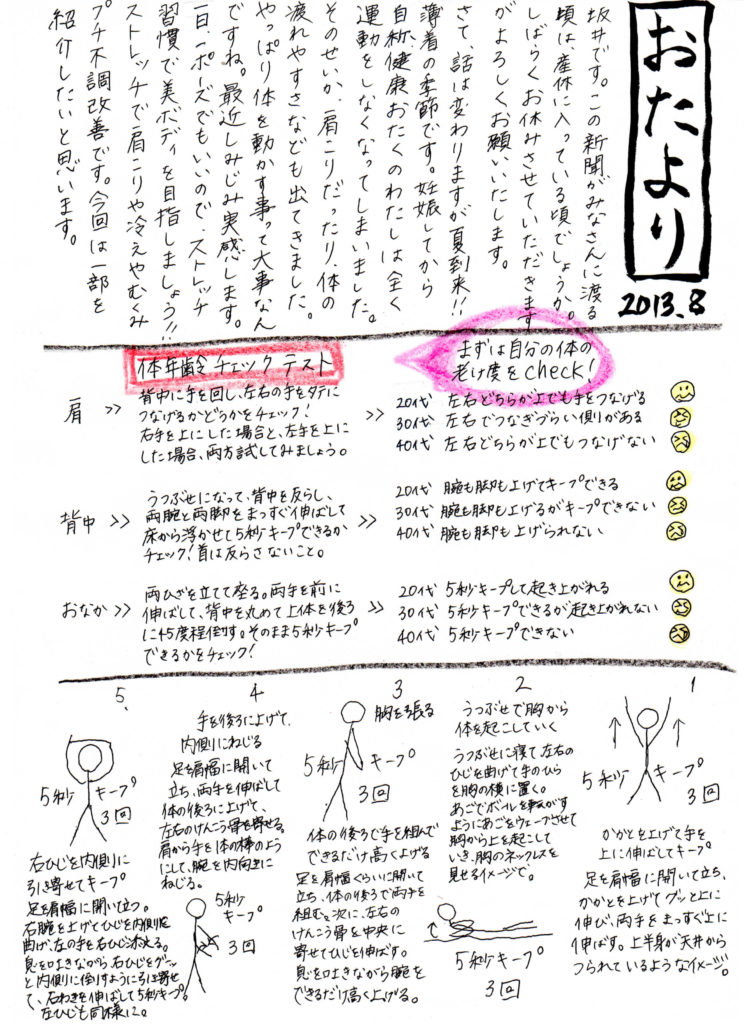 おたより
2013.8
坂井です。この新聞がみなさんに渡る
頃は、産休に入っている頃でしょうか。
しばらくお休みさせていただきます
がよろしくお願いいたします。
さて、話は変わりますが夏到来!!
薄着の季節です。妊娠してから
自称、健康おたくのわたしは全く
運動をしなくなってしまいました。
そのせいか、肩こりだったり、体の
疲れやすさなども出てきました。
やっぱり体を動かす事って大事なん
ですね。最近しみじみ実感します。
一日、一ポーズでもいいので、ストレッチ
習慣で美ボディを目指しましょう!!
ストレッチで肩こりや冷えやむくみ
プチ不調改善です。今回は一部を
紹介したいと思います。
体年齢チェックテスト
まずは自分の体の
老け度をcheck!
肩 >>
背中に手を回し、左右の手をタテに
つなげるかどうかをチェック!
右手を上にした場合と、左手を上に
した場合、両方試してみましょう。
>>
20代 左右どちらが上でも手をつなげる
30代 左右でつなぎづらい側がある
40代 左右どちらが上でもつなげない
背中 >>
うつぶせになって、背中を反らし、
両腕と両脚をまっすぐ伸ばして
床から浮かせて5秒キープできるか
チェック!首は反らさないこと。
>>
20代 腕も脚も上げてキープできる
30代 腕も脚も上げるがキープできない
40代 腕も脚も上げられない
おなか >>
両ひざを立てて座る。両手を前に
伸ばして、背中を丸めて上体を後ろ
に45度程倒す。そのまま5秒キープ
できるかをチェック!
>>
20代 5秒キープして起き上がれる
30代 5秒キープできるが起き上がれない
40代 5秒キープできない
1
5秒キープ
3回
かかとを上げて手を
上に伸ばしてキープ
足を肩幅に開いて立ち、
かかとを上げてグッと上に
伸び、両手をまっすぐ上に
伸ばす。上半身が天井から
つられているようなイメージ。
2
うつぶせで胸から
体を起こしていく
うつぶせに寝て左右の
ひじを曲げて手のひら
を胸の横に置く。
あごでボールを転がす
ようにあごをウェーブさせて
胸から上を起こして
いき、胸のネックレスを
見せるイメージで。
5秒キープ
3回
3
胸を張る
5秒キープ
3回
体の後ろで手を組んで
できるだけ高くよげる
足を肩幅くらいに開いて
立ち、体の後ろで両手を
組む。次に、左右の
けんこう骨を中央に
寄せてひじを伸ばす。
息を吐きながら腕を
できるだけ高く上げる。
4
手を後ろによげて、
内側にねじる
足を肩幅に開いて
立ち、両手を伸ばして
体の後ろに上げて、
左右のけんこう骨を寄せる。
肩から手を1本の棒のよう
にして、腕を内向きに
ねじる。
5秒
キープ
3回
5
5秒キープ
3回
右ひじを内側に
引き寄せてキープ
足を肩幅に開いて立つ。
右腕を上げてひじを内側に
曲げ、左の手を右ひじに添える。
息を吐きながら右ひじをグーッ
と内側に倒すように引き寄せ
て、右わきを伸ばして5秒キープ。
左ひじも同様に。